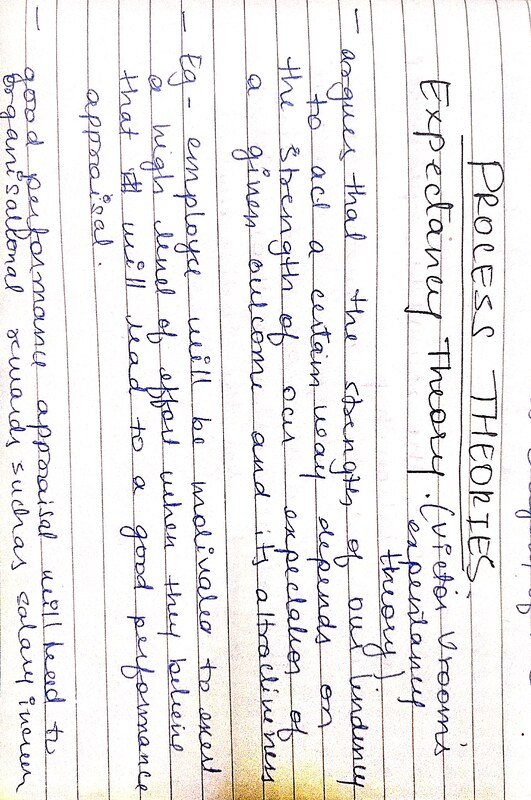 PROCESS THEORIES.
Expectancy Theory. (Victor Vroom's
expentancy
theory)
- argues that the strength of our tendency
to act a certain way depends on
the strength of our expectation of
a given outcome and its attractiveness
- Eg - employe will be motivated to exert
a high level of effort when they believe
that it will lead to a good performance
appraisal.
- good performance appraisal will lead to
organisational rewards such as salary increm